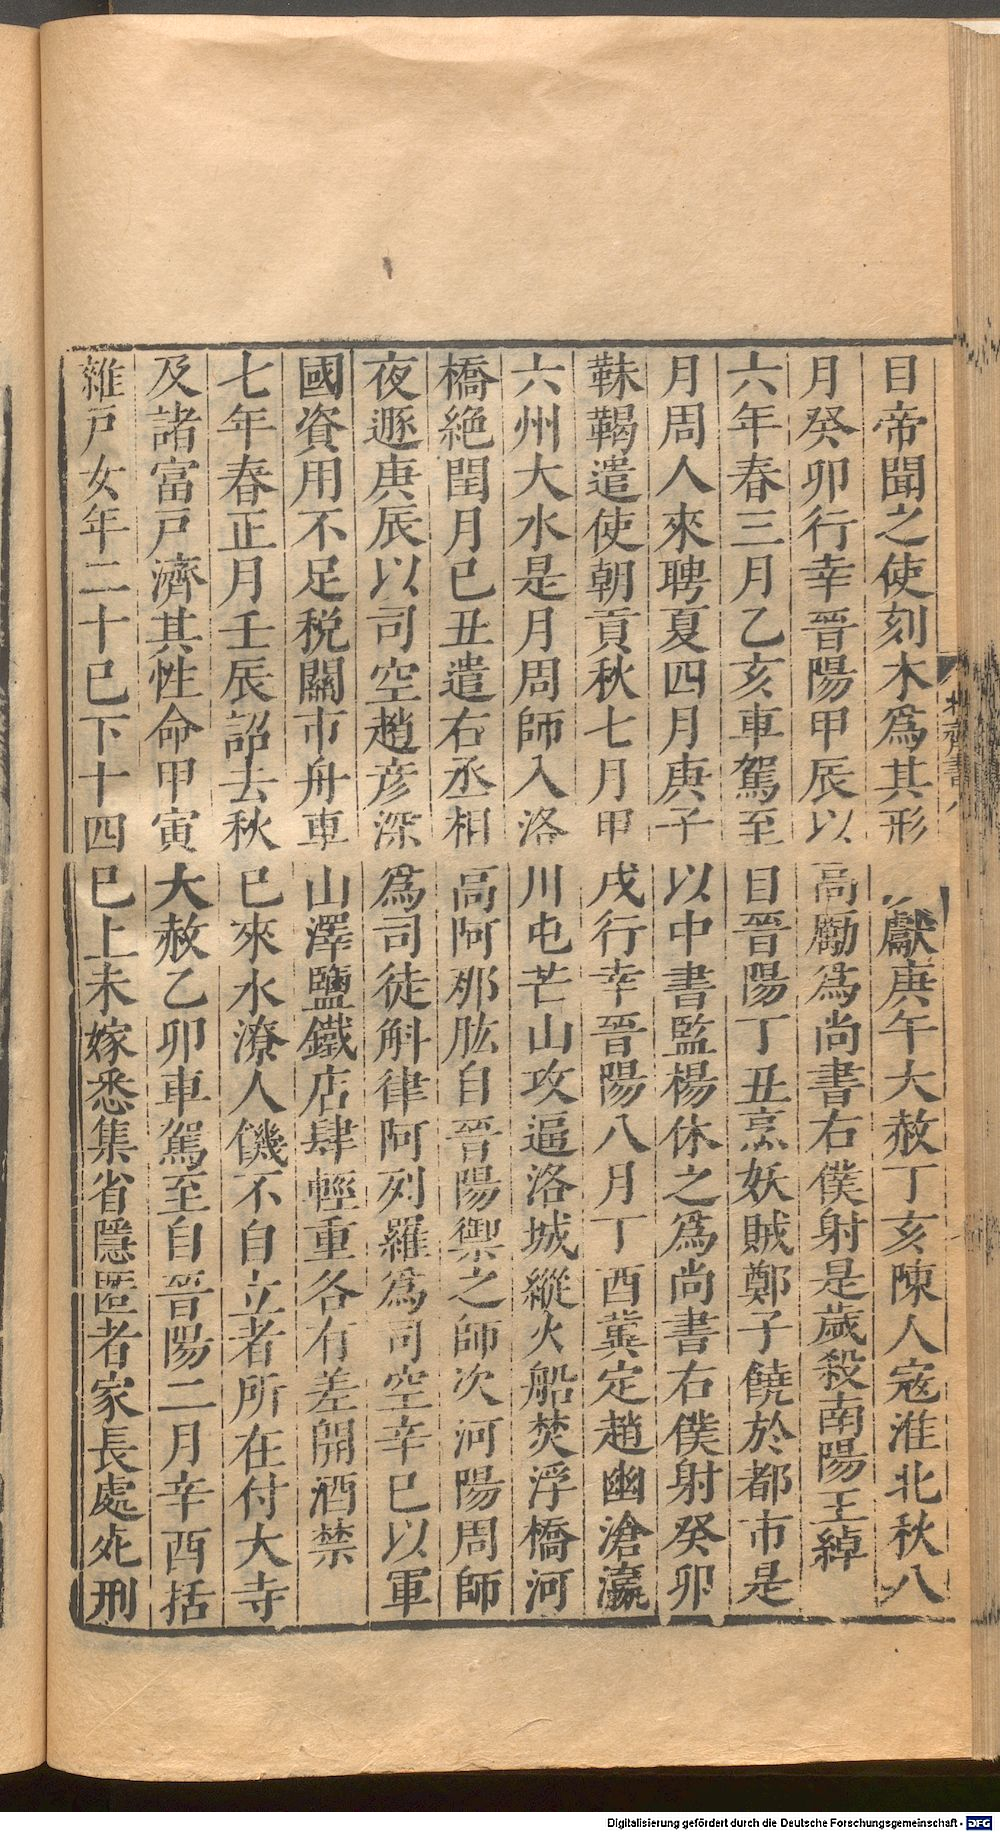 目帝聞之使刻木爲其形獻庚午大赦丁亥陳人寇淮北秋八
月癸卯行幸晉陽甲辰以高勱爲尚書右僕射是歲殺南陽王綽
六年春三月乙亥車駕至自晉陽丁丑烹妖賊鄭子饒於都市是
月周人來聘夏四月庚子以中書監楊休之爲尚書右僕射癸卯
靺鞨遣使朝貢秋七月甲戌行幸晉陽八月丁酉冀定趙幽滄瀛
六州大水是月周師入洛川屯芒山攻逼洛城縱火船焚浮橋河
橋絶閏月己丑遣右丞相高阿那肱自晉陽禦之師次河陽周師
夜遯庚辰以司空趙彦深爲司徒斛律阿列羅爲司空辛巳以軍
國資用不足税關市舟車山澤鹽鐵店肆輕重各有差開酒禁
七年春正月壬辰詔去秋已來水潦人饑不自立者所在付大寺
及諸富戸濟其性命甲寅大赦乙卯車駕至自晉陽二月辛酉括
雜戸女年二十已下十四已上未嫁悉集省隱匿者家長處死刑
北齊書八
Digitalisierung gefördert durch die Deutsche Forschungsgemeinschaft - DFG